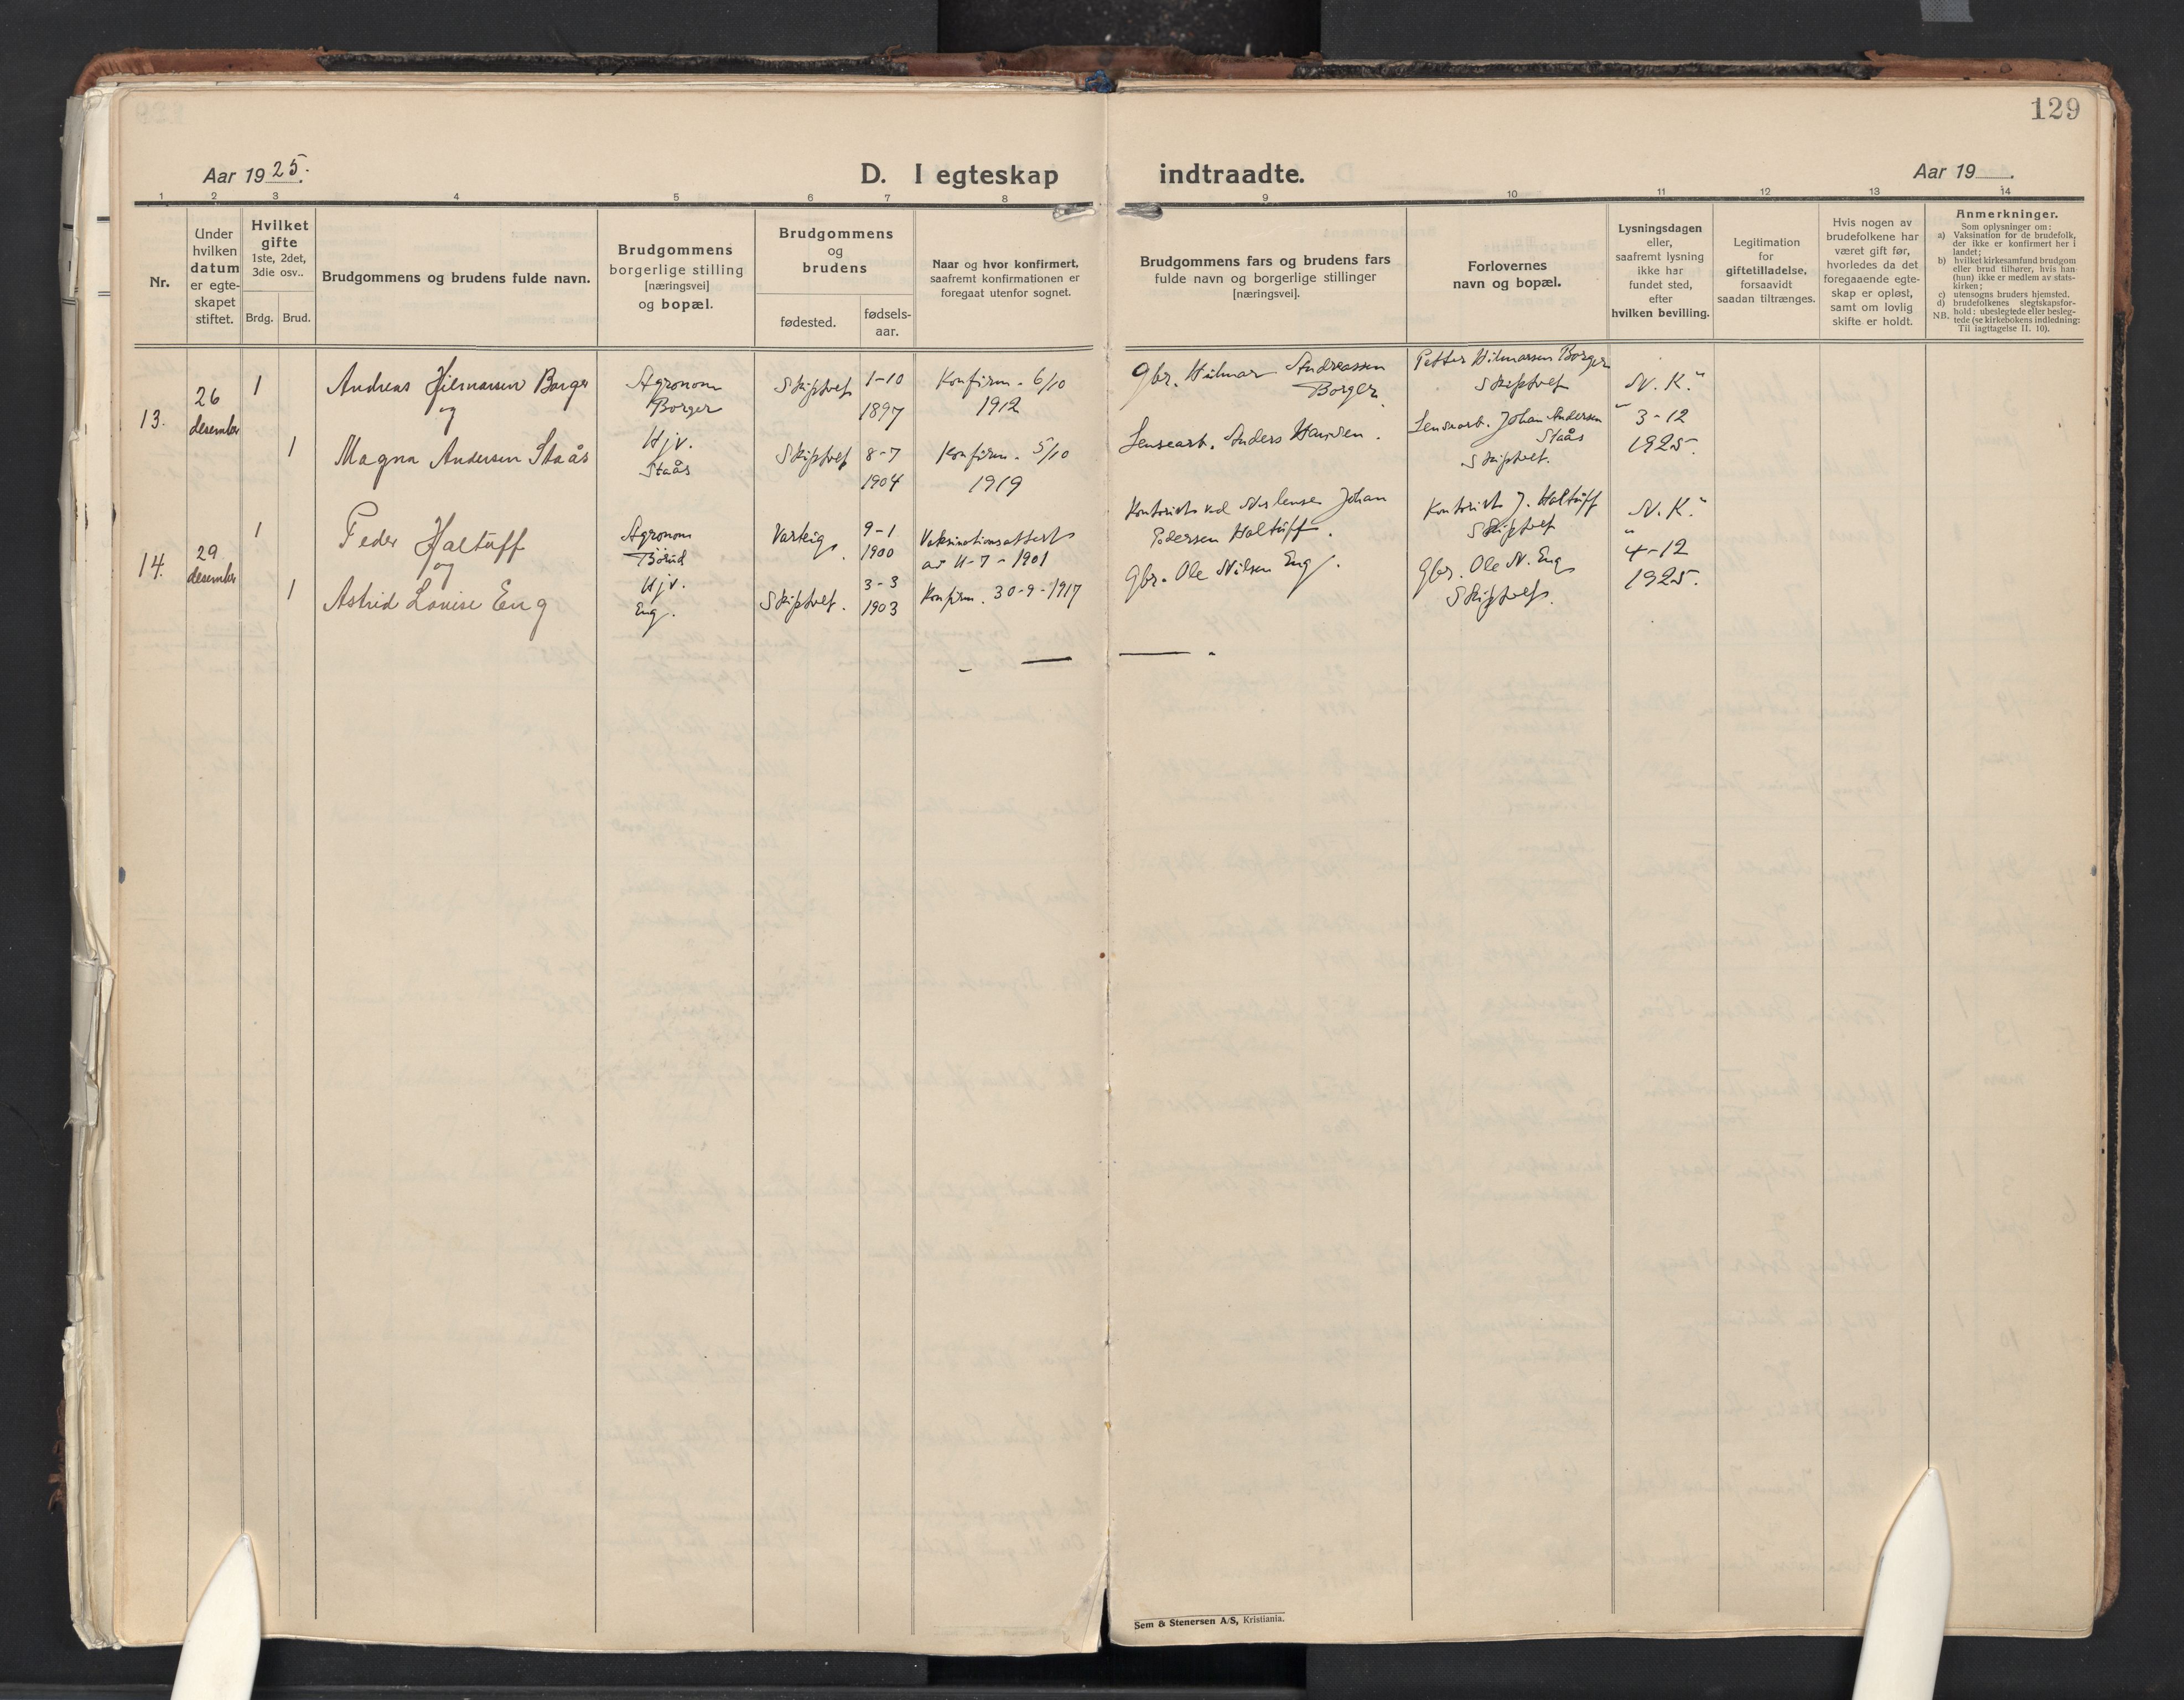 129
Aar 1925.
D. I egteskap indtraadte.
Aar 19 .
1 2 3 4 5 6 7 8 9 10 11 12 13 14
Nr.
Under
hvilken
datum
er egte-
skapet
stiftet.
Hvilket
gifte
1ste, 2det,
3die osv..
Brdg. Brud.
Brudgommens og brudens fulde navn.
Brudgommens
borgerlige stilling
[næringsvei]
og bopæl.
Brudgommens
og
brudens
fødested.
fødsels-
aar.
Naar og hvor konfirmert,
saafremt konfirmationen er
foregaat utenfor sognet.
Brudgommens fars og brudens fars
fulde navn og borgerlige stillinger
[næringsvei].
Forlovernes
navn og bopæl.
Lysningsdagen
eller,
saafremt lysning
ikke har
fundet sted,
efter
hvilken bevilling.
Legitimation
for
giftetilladelse,
forsaavidt
saadan tiltrænges.
Hvis nogen av
brudefolkene har
været gift før,
hvorledes da det
foregaaende egte-
skap er opløst,
samt om lovlig
skifte er holdt.
Anmerkninger.
Som oplysninger om:
a) Vaksination for de brudefolk,
der ikke er konfirmert her i
landet;
b) hvilket kirkesamfund brudgom
eller brud tilhører, hvis han
(hun) ikke er medlem av stats-
kirken;
c) utensogns bruders hjemsted.
d) brudefolkenes slegtskapsfor-
hold: ubeslegtede eller besleg-
NB. tede (se kirkebokens indledning:
Til iagttagelse II. 10).
13.
26
desember
1
Andreas Hilmarsen Borger
og
1
Magna Andersen Staås
Agronom
Borger
Hjv.
Staås
Skiptvet
Skiptvet
1-10
1897
8-7
1904
Konfirm. 6/10
1912
Konfirm. 5/10
1919
Gbr. Hilmar Andreassen
Borger.
Lensearb. Anders Hansen.
Petter Hilmarsen Borger
Skiptvet
Lensearb. Johan Andersen
Staås
Skiptvet.
"N. K."
3-12
1925.
14.
29
desember
1
Peder Haltuff
og
1
Astrid Lovise Eng
Agronom
Hjv.
Eng.
Varteig.
Skiptvet.
9-1
1900
3-3
1903
Vaksinationsattest
av 11-7-1901
Konfirm. 30-9-1917
Kontorist ved Johan
Pedersen Haltuff.
Gbr. Ole Nilsen Eng.
Kontorist J. Haltuff
Skiptvet
Gbr. Ole N. Eng
Skiptvet.
"N. K."
4-12
1925.
Sem & Stenersen A/S, Kristiania.